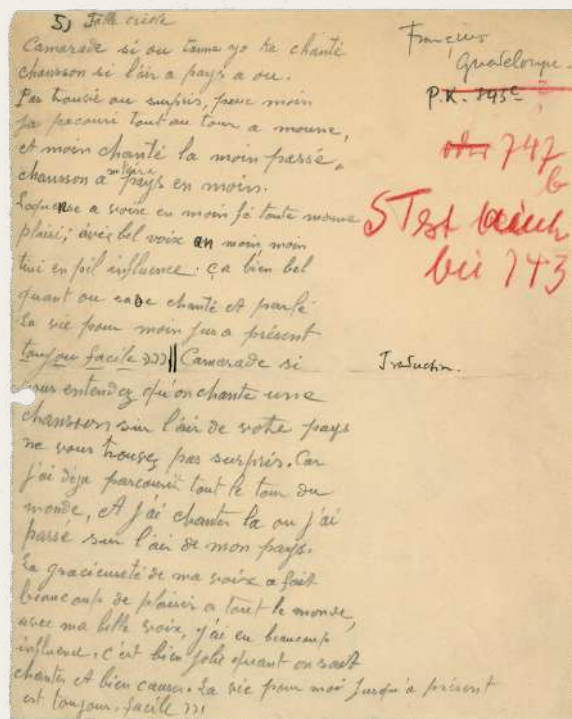 5) Fable créole
Camarade si ou tanne yo ka chanté
chansson si l'air a pays a ou.
Pas trouvé ou surpris, pace moin
ja pacouri tout ou tour a moune,
et moin chanté la moin passé,
chansson a pays en moin.
a voix en moin fé toute moune
plaisi; avec bel voix an moin, moin
tini en pil influence. ça bien bel
quant ou save chanté et parlé
La vie pour moin juro présent
toujou facile))) || Camarade si
vous entendez qu'on chante une
chansson sur l'air de votre pays
ne vous trouvez pas surpris. Car
j'ai déja parcourir tout le tour du
monde, et j'ai chanter la ou j'ai
passé sur l'air de mon pays.
La gracieuseté de ma voix a fait
beaucoup de plaisir a tout le monde,
avec ma belle voix, j'ai eu beaucoup
influence. c'est bien jolie quant on sait
chanter et bien causer. La vie pour moi jusqu'a présent
est toujour facile )))
Guadeloupe.
P.K. 745c
oder 747
b
S Test auch
bei 743
Traduction.